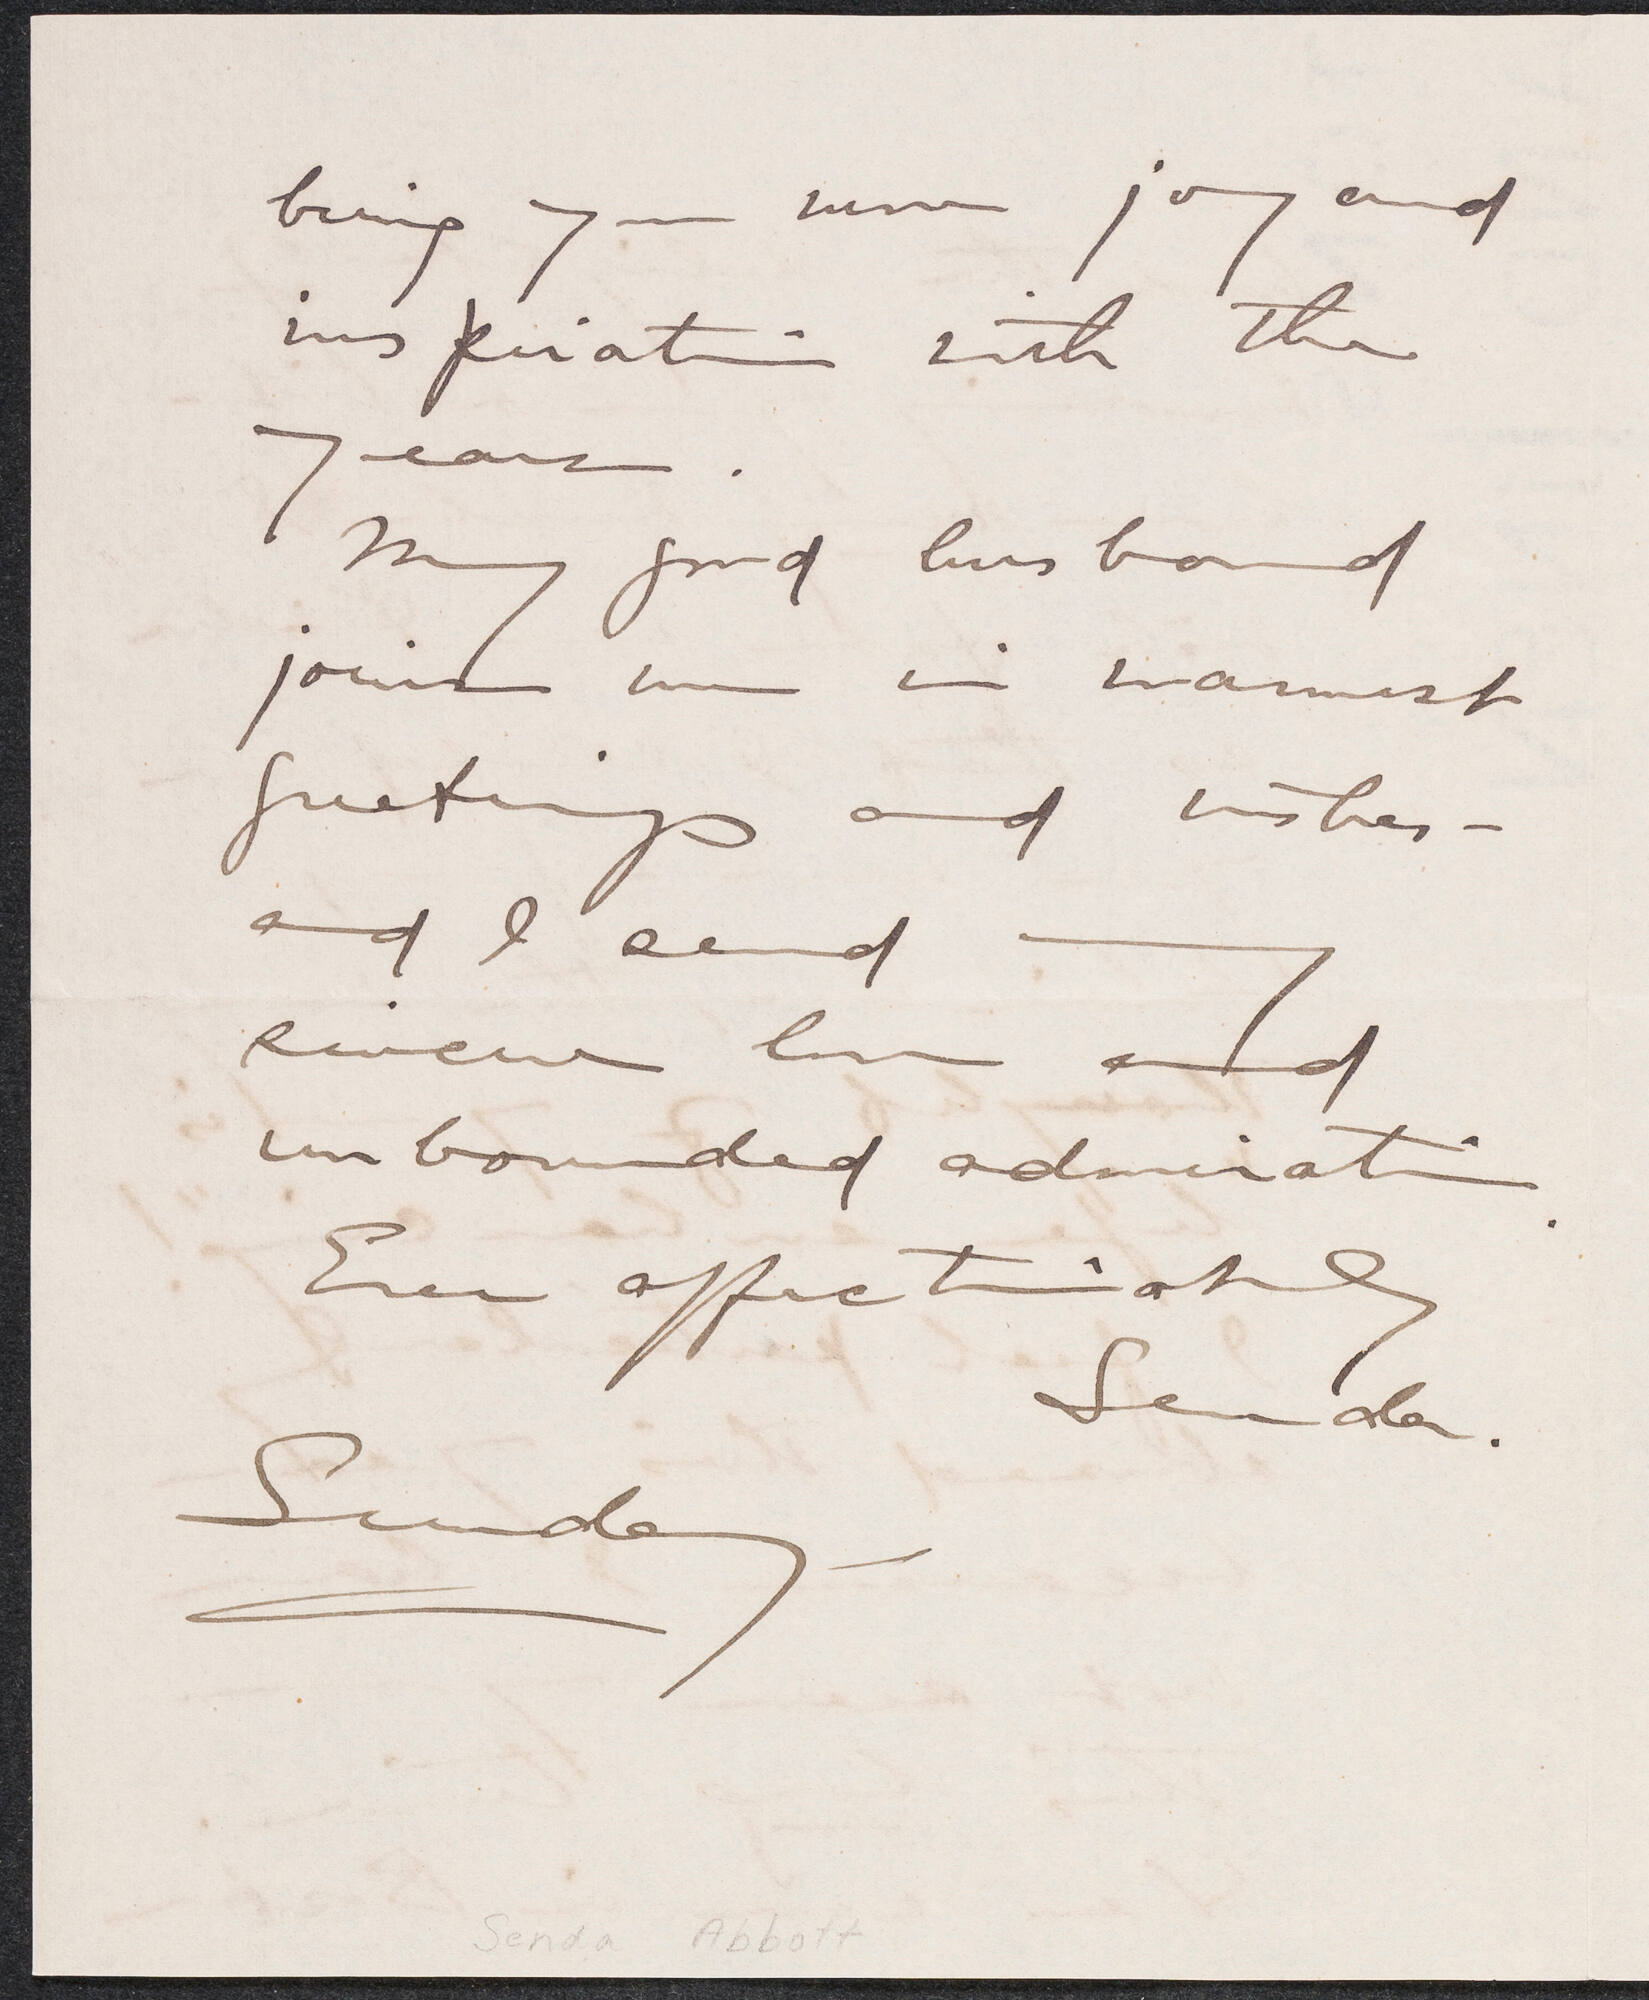 bring you more joy and
inspiration with the
years.
My good husband
joins me in warmest
greetings and wishes -
and I send my
sincere love and
unbounded admiration.
Ever affectionately
Senda.
Sunday -
Senda Abbott